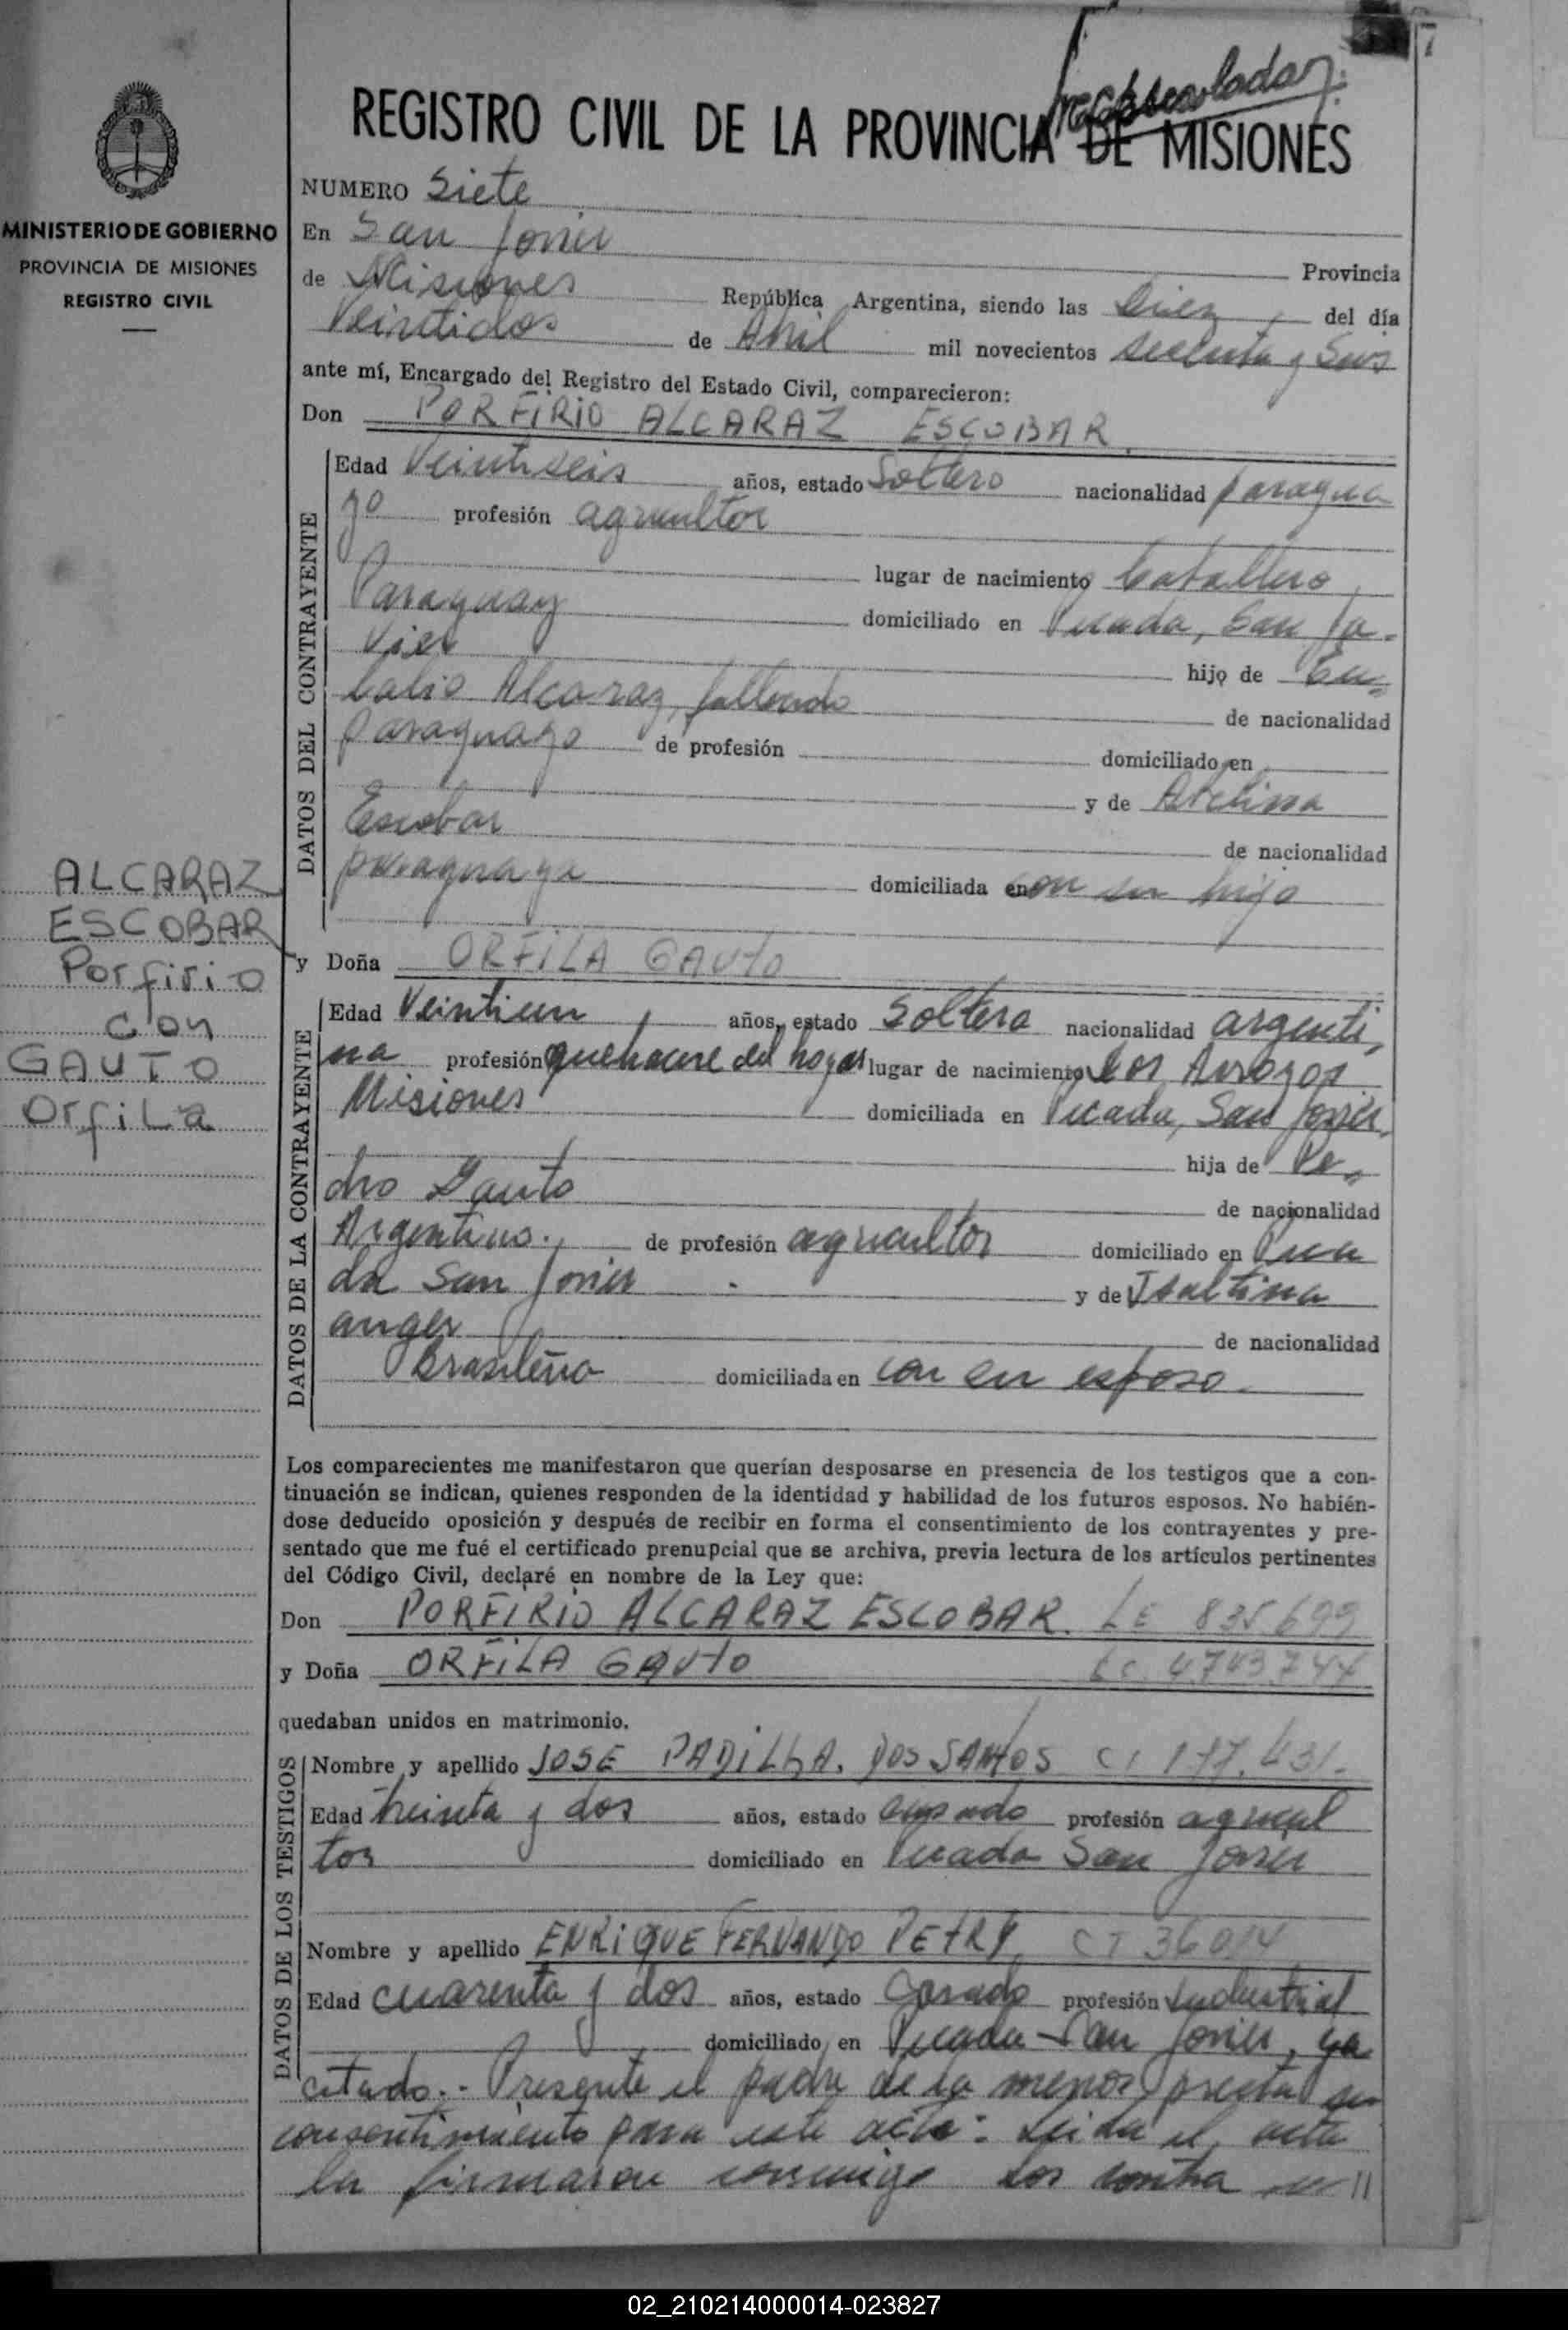 7
REGISTRO CIVIL DE LA PROVINCIA DE MISIONES
MINISTERIO DE GOBIERNO
PROVINCIA DE MISIONES
REGISTRO CIVIL
NUMERO Siete
En San Javier Provincia
de Misiones República Argentina, siendo las Diez del día
Veintidos de Abril mil novecientos sesenta y Seis
ante mí, Encargado del Registro del Estado Civil, comparecieron:
Don PORFIRIO ALCARAZ ESCOBAR
DATOS DEL CONTRAYENTE
Edad Veintiseis años, estado Soltero nacionalidad paragua
yo profesión agricultor
lugar de nacimiento Caballero,
Paraguay domiciliado en Picada, San Ja-
vier hijo de Eu-
lalio Alcaraz, fallecido de nacionalidad
paraguayo de profesión domiciliado en
y de Avelina
Escobar de nacionalidad
paraguaya domiciliada en con su hijo
ALCARAZ
ESCOBAR
Porfirio
con
GAUTO
Orfila
y Doña ORFILA GAUTO
DATOS DE LA CONTRAYENTE
Edad Veintiun años, estado Soltera nacionalidad argenti,
na profesión quehacere del hogar lugar de nacimiento Los Arroyos
Misiones domiciliada en Picada, San Javier,
hija de Pe,
dro Gauto de nacionalidad
Argentino., de profesión agricultor domiciliado en Pica
da San Javier y de Isaltina
de nacionalidad
Brasileña domiciliada en con su esposo.
Los comparecientes me manifestaron que querían desposarse en presencia de los testigos que a con-
tinuación se indican, quienes responden de la identidad y habilidad de los futuros esposos. No habién-
dose deducido oposición y después de recibir en forma el consentimiento de los contrayentes y pre-
sentado que me fué el certificado prenupcial que se archiva, previa lectura de los artículos pertinentes
del Código Civil, declaré en nombre de la Ley que:
Don PORFIRIO ALCARAZ ESCOBAR. LE 835699
y Doña ORFILA GAUTO LC 4.743.744
quedaban unidos en matrimonio.
DATOS DE LOS TESTIGOS
Nombre y apellido JOSE PADILHA. DOS SANTOS CI 177.431.
Edad treinta y dos años, estado casado profesión agricul
tor domiciliado en Picada San Javier
Nombre y apellido ENRIQUE FERNANDO PETRY CI 36014
Edad cuarenta y dos años, estado Casado profesión industrial
domiciliado en Picada San Javier, ya
citado.- Presente el padre de la menor presta su
consentimiento para este acto: Leida el acta
la firmaron conmigo los contra
02_210214000014-023827